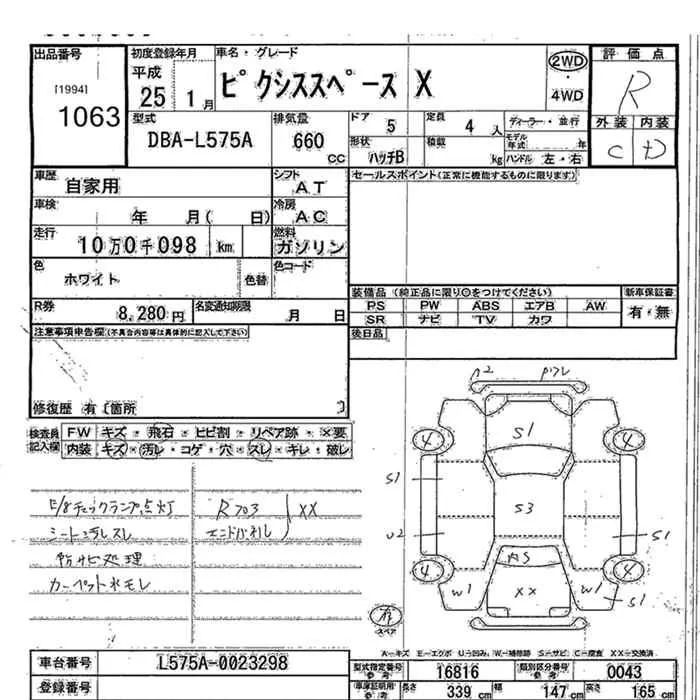 出品番号
[1994]
1063
初度登録年月
平成
25 1月
車名・グレード
ピクシススペース X
2WD
・
4WD
評価点
R
外装 内装
C D
型式
DBA-L575A
排気量
660
CC
ドア 5
定員 4 人
ディーラー・並行
モデル年式 年
形状 ハッチB
積数 kg
ハンドル 左・右
車歴
自家用
シフト
AT
セールスポイント(正常に機能するものに限ります)
車検
年 月( 日)
冷房
AC
走行
10万0千098 km
燃料
ガソリン
色
ホワイト
色替
色コード
装備品 (純正品に限り○をつけてください)
新車保証書
PS PW ABS エアB AW
有・無
SR ナビ TV カワ
R券
8,280円
名変通知期限
月 日
後日品
注意事項申告欄(不具合内容等は具体的に記入して下さい)
修復歴 有〔箇所 〕
検査員記入欄
FW キズ・飛石・ヒビ割・リペア跡・×要
内装 キズ・汚レ・コゲ・穴・スレ・キレ・破レ
E/gチェックランプ点灯
シート
防サビ処理
カーペット水モレ
R フロア
エンドパネル
XX
A2
S1
4 4
S1
S3
U2
S1
AS
4 4
W1
XX
W1
S1
有
スペア
A−キズ E−エクボ U−凹み W−補修跡 S−サビ C−腐食 XX−交換済
車台番号
L575A-0023298
登録番号
型式指定番号
参考
16816
類別区分番号
参考
0043
車庫証明用
参考
長さ 339 cm
幅 147 cm
高さ 165 cm